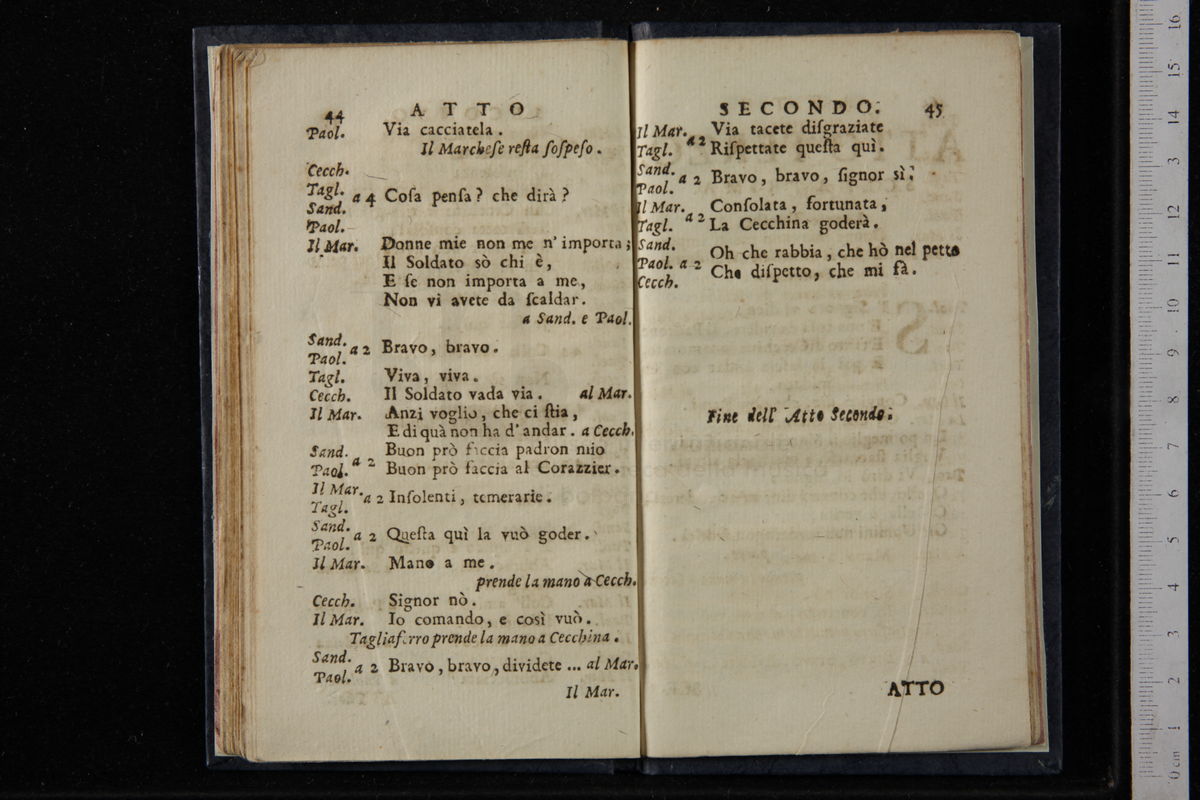 44 ATTO
Paol. Via cacciatela.
Il Marchese resta ſoſpeſo.
Cecch.
Tagl.
Sand. a 4 Coſa penſa? che dirà?
Paol.
Il Mar. Donne mie non me n' importa;
Il Soldato sò chi è,
E ſe non importa a me,
Non vi avete da ſcaldar.
a Sand. e Paol.
Sand.
Paol. a 2 Bravo, bravo.
Tagl. Viva, viva.
Cecch. Il Soldato vada via. al Mar.
Il Mar. Anzi voglio, che ci ſtia,
E di quà non ha d' andar. a Cecch.
Sand. Buon prò faccia padron mio
Paol. a 2 Buon prò faccia al Corazzier.
Il Mar.
Tagl. a 2 Inſolenti, temerarie.
Sand.
Paol. a 2 Queſta quì la vuò goder.
Il Mar. Mano a me.
prende la mano a Cecch.
Cecch. Signor nò.
Il Mar. Io comando, e così vuò.
Tagliaferro prende la mano a Cecchina.
Sand.
Paol. a 2 Bravo, bravo, dividete ... al Mar.
Il Mar.
SECONDO. 45
Il Mar. Via tacete diſgraziate
Tagl. a 2 Riſpettate queſta quì.
Sand.
Paol. a 2 Bravo, bravo, ſignor sì.
Il Mar. Conſolata, fortunata,
Tagl. a 2 La Cecchina goderà.
Sand. Oh che rabbia, che hò nel petto
Paol. a 2 Che diſpetto, che mi fà.
Cecch.
Fine dell' Atto Secondo.
ATTO
16
15
14
13
12
11
10
9
8
7
6
5
4
3
2
1
0 cm